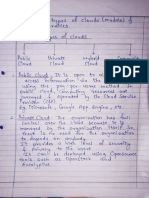 types of clouds (models) of
types of clouds
Public Private Hybrid Community
Cloud Cloud Cloud Cloud
Public cloud : It is open to all to
access information via the
using the pay-per-use method. In
public cloud, computing resources are
managed & operated by the Cloud Service
Provider (CSP)
Eg. Microsoft, Google App Engine etc.
Private Cloud: The organization has full
control over the cloud because it is
managed by the organization itself
there is no need for the organization
to depends on anybody.
It provides a high level of security
& privacy to the user.
Can be deployed using Opensource
tools such as Openstack and
Eucalyptus